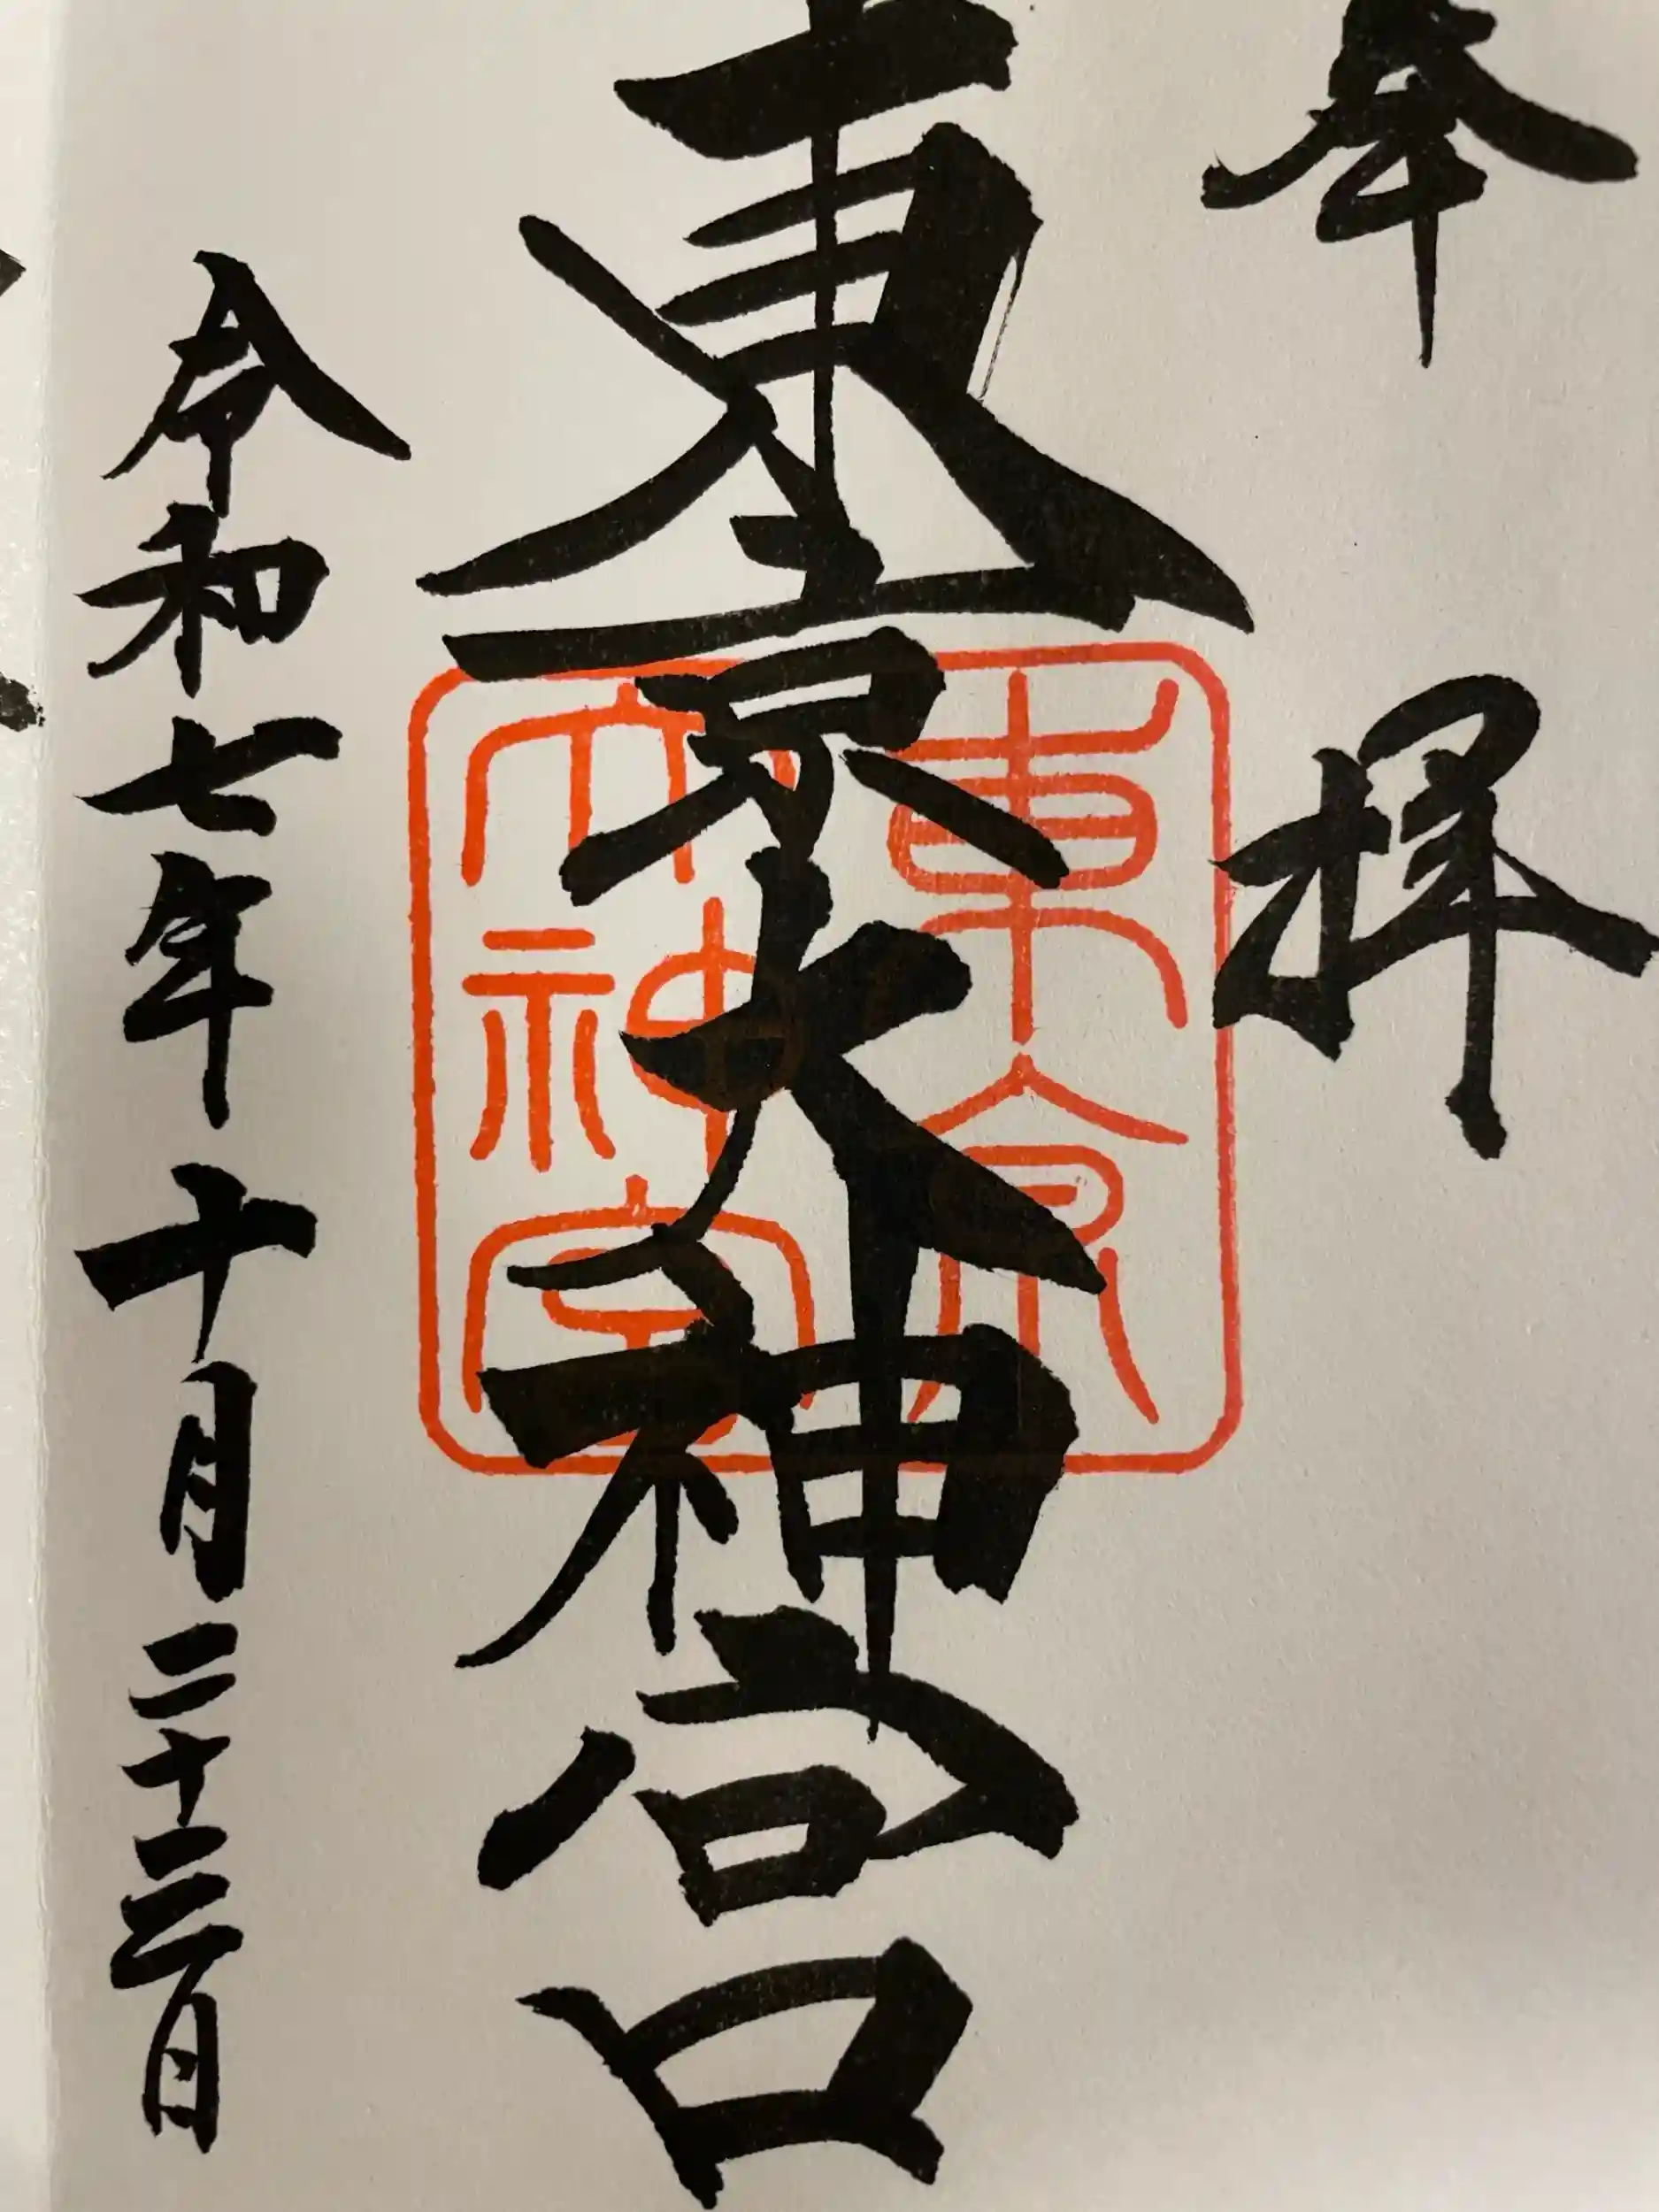 奉拝
東京大神宮
東京大神宮
令和七年十月二十三日